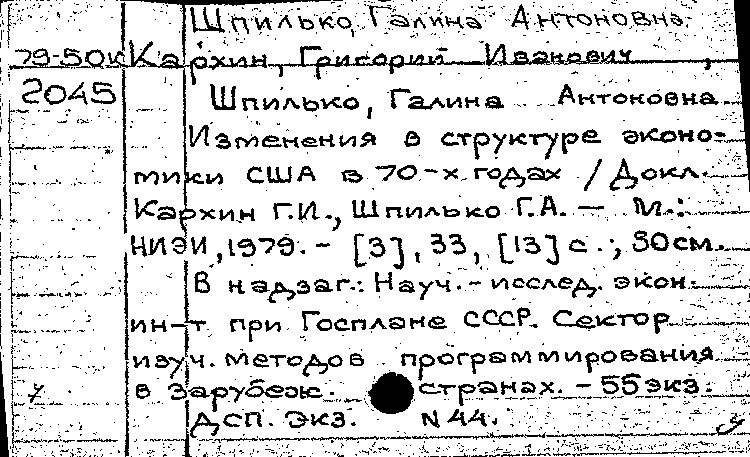 Шпилько, Галина Антоновна.
79-50к Кархин, Григорий Иванович,
2045 Шпилько, Галина Антоновна
Изменения в структуре эконо-
мики США в 70-х годах / Докл.
Кархин Г.И., Шпилько Г.А. — М.:
НИЭИ, 1979. - [3], 33, [13] с.; 30 см.
В надзаг.: Науч.-исслед. экон.
ин-т при Госплане СССР. Сектор
изуч. методов программирования
в зарубеж. странах. - 55 экз.
ДСП. Экз. N 44.